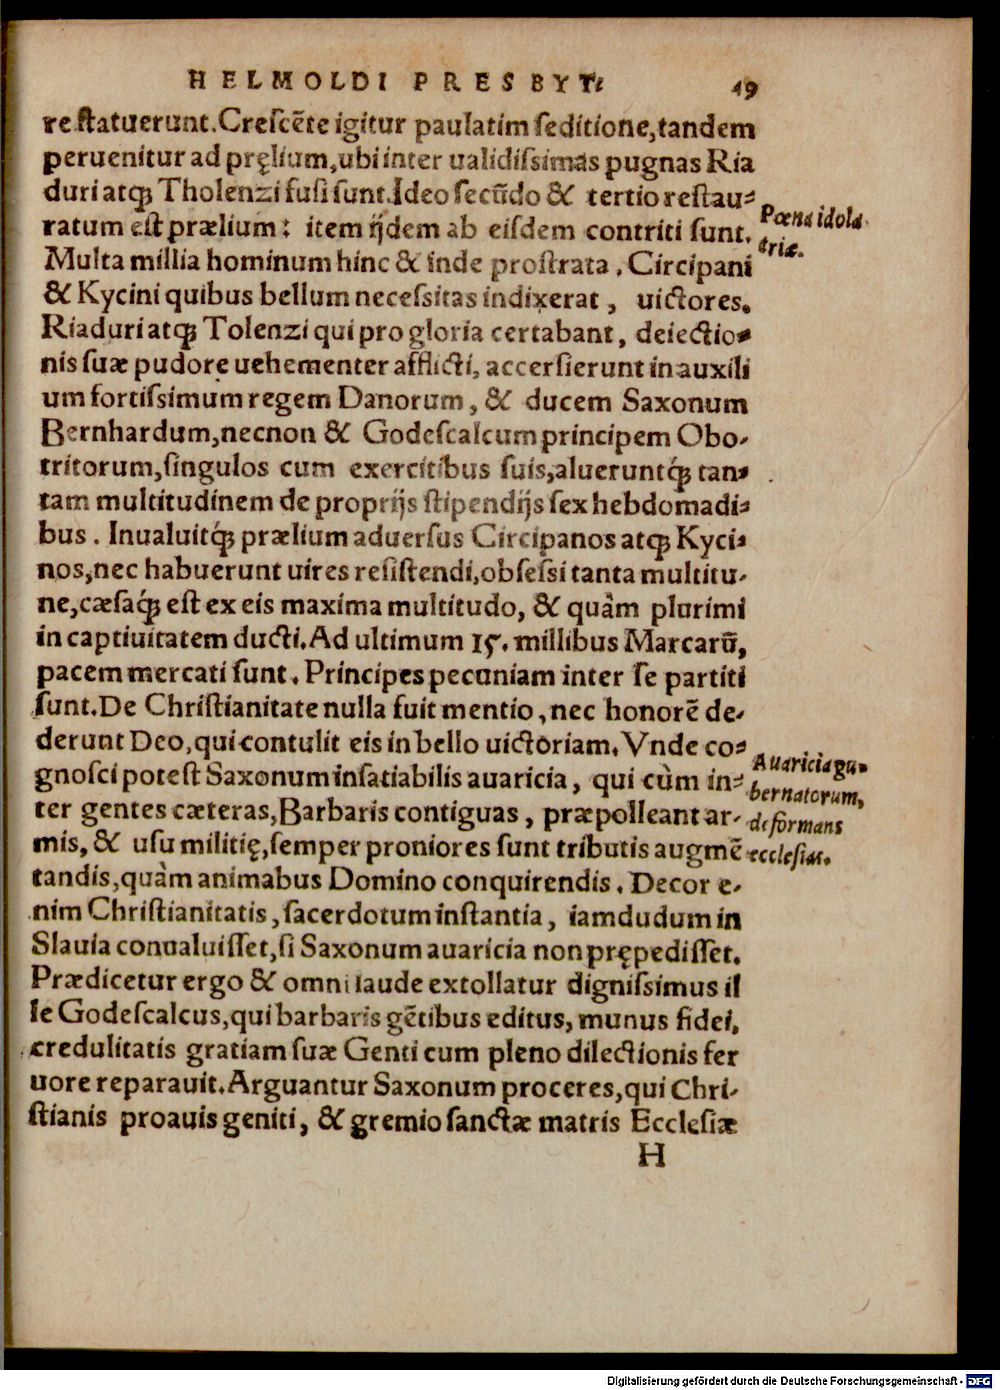 HELMOLDI PRESBYT. 49
re ſtatuerunt. Creſcẽte igitur paulatim ſeditione, tandem
peruenitur ad pręlium, ubi inter ualidiſsimas pugnas Ria
duri atq́ꝫ Tholenzi fuſi ſunt. Ideo ſecũdo & tertio reſtau⸗
ratum eſt prælium: item ijdem ab eiſdem contriti ſunt.
Pœna idola⸗
triæ.
Multa millia hominum hinc & inde proſtrata. Circipani
& Kycini quibus bellum neceſsitas indixerat, uictores.
Riaduri atq́ꝫ Tolenzi qui pro gloria certabant, deiectio⸗
nis ſuæ pudore uehementer afflicti, accerſierunt in auxili
um fortiſsimum regem Danorum, & ducem Saxonum
Bernhardum, necnon & Godeſcalcum principem Obo⸗
tritorum, ſingulos cum exercitibus ſuis, alueruntq́ꝫ tan⸗
tam multitudinem de proprijs ſtipendijs ſex hebdomadi⸗
bus. Inualuitq́ꝫ prælium aduerſus Circipanos atq́ꝫ Kyci⸗
nos, nec habuerunt uires reſiſtendi, obſeſsi tanta multitu⸗
ne, cæſaq́ꝫ eſt ex eis maxima multitudo, & quàm plurimi
in captiuitatem ducti. Ad ultimum 15. millibus Marcarũ,
pacem mercati ſunt. Principes pecuniam inter ſe partiti
ſunt. De Chriſtianitate nulla fuit mentio, nec honorẽ de⸗
derunt Deo, qui contulit eis in bello uictoriam. Vnde co⸗
gnoſci poteſt Saxonum inſatiabilis auaricia, qui cùm in⸗
ter gentes cæteras, Barbaris contiguas, præpolleant ar⸗
mis, & uſu militię, ſemper proniores ſunt tributis augmẽ
Auaricia gu⸗
bernatorum,
deformans
eccleſias.
tandis, quàm animabus Domino conquirendis. Decor e⸗
nim Chriſtianitatis, ſacerdotum inſtantia, iamdudum in
Slauia conualuiſſet, ſi Saxonum auaricia non prępediſſet.
Prædicetur ergo & omni laude extollatur digniſsimus il
le Godeſcalcus, qui barbaris gẽtibus editus, munus fidei,
credulitatis gratiam ſuæ Genti cum pleno dilectionis fer
uore reparauit. Arguantur Saxonum proceres, qui Chri⸗
ſtianis proauis geniti, & gremio ſanctæ matris Eccleſiæ
H
Digitalisierung gefördert durch die Deutsche Forschungsgemeinschaft - DFG